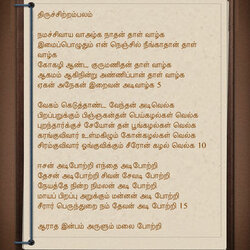 திருச்சிற்றம்பலம்
நமச்சிவாய வாஅழ்க நாதன் தாள் வாழ்க
இமைப்பொழுதும் என் நெஞ்சில் நீங்காதான் தாள்
வாழ்க
கோகழி ஆண்ட குருமணிதன் தாள் வாழ்க
ஆகமம் ஆகிநின்று அண்ணிப்பான் தாள் வாழ்க
ஏகன் அநேகன் இறைவன் அடிவாழ்க 5
வேகம் கெடுத்தாண்ட வேந்தன் அடிவெல்க
பிறப்பறுக்கும் பிஞ்ஞகன்தன் பெய்கழல்கள் வெல்க
புறந்தார்க்குச் சேயோன் தன் பூங்கழல்கள் வெல்க
கரங்குவிவார் உள்மகிழும் கோன்கழல்கள் வெல்க
சிரங்குவிவார் ஓங்குவிக்கும் சீரோன் கழல் வெல்க 10
ஈசன் அடிபோற்றி எந்தை அடிபோற்றி
தேசன் அடிபோற்றி சிவன் சேவடி போற்றி
நேயத்தே நின்ற நிமலன் அடி போற்றி
மாயப் பிறப்பு அறுக்கும் மன்னன் அடி போற்றி
சீரார் பெருந்துறை நம் தேவன் அடி போற்றி 15
ஆராத இன்பம் அருளும் மலை போற்றி